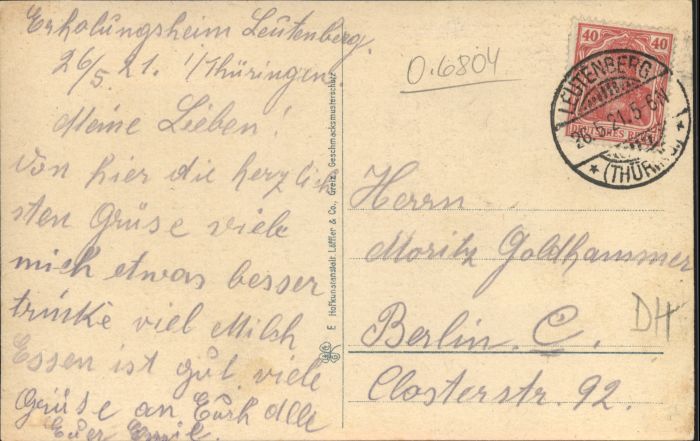 Erholungsheim Leutenberg.
26/5.21. i/Thüringen.
Meine Lieben!
Von hier die herzlich
sten Grüse viele
mich etwas besser
trinke viel Milch
Essen ist gut viele
Grüse an Euch alle
Euer Emil.
E Hofkunstanstalt Löffler & Co., Greiz, Geschmacksmusterschutz
O.6804
40 40
DEUTSCHES REICH
LEUTENBERG
26.5.21.5-6N
* (THÜR. *
Herrn
Moritz Goldhammer
Berlin. C.
Closterstr. 92.
DH